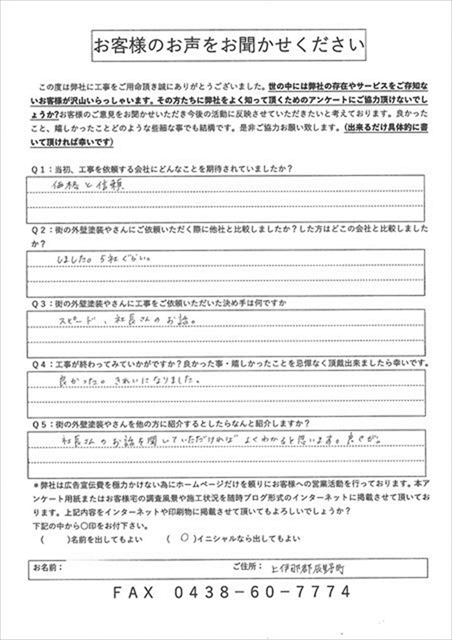 お客様のお声をお聞かせください
この度は弊社に工事をご用命頂き誠にありがとうございました。世の中には弊社の存在やサービスをご存知な
いお客様が沢山いらっしゃいます。その方たちに弊社をよく知って頂くためのアンケートにご協力頂けないでし
ょうか?お客様のご意見をお聞かせいただき今後の活動に反映させていただきたいと考えております。良かった
こと、嬉しかったことどのような些細な事でも結構です。是非ご協力お願い致します。(出来るだけ具体的に書
いて頂ければ幸いです)
Q1:当初、工事を依頼する会社にどんなことを期待されていましたか?
価格と信頼
Q2:街の外壁塗装やさんにご依頼いただく際に他社と比較しましたか?した方はどこの会社と比較しました
か?
しました。5社ぐらい。
Q3:街の外壁塗装やさんに工事をご依頼いただいた決め手は何ですか
スピード、社長さんのお話。
Q4:工事が終わってみていかがですか?良かった事・嬉しかったことを忌憚なく頂戴出来ましたら幸いです。
良かった。きれいになりました。
Q5:街の外壁塗装やさんを他の方に紹介するとしたらなんと紹介しますか?
社長さんのお話を聞いていただければよくわかると思います。
*弊社は広告宣伝費を極力かけない為にホームページだけを頼りにお客様への営業活動を行っております。本ア
ンケート用紙またはお客様宅の調査風景や施工状況を随時ブログ形式のインターネットに掲載させて頂いてお
ります。上記内容をインターネットや印刷物に掲載させて頂いてもよろしいでしょうか?
下記の中から〇印をお付下さい。
( )名前を出してもよい (〇)イニシャルなら出してもよい
お名前: ご住所: 上伊那郡辰野町
FAX 0438-60-7774